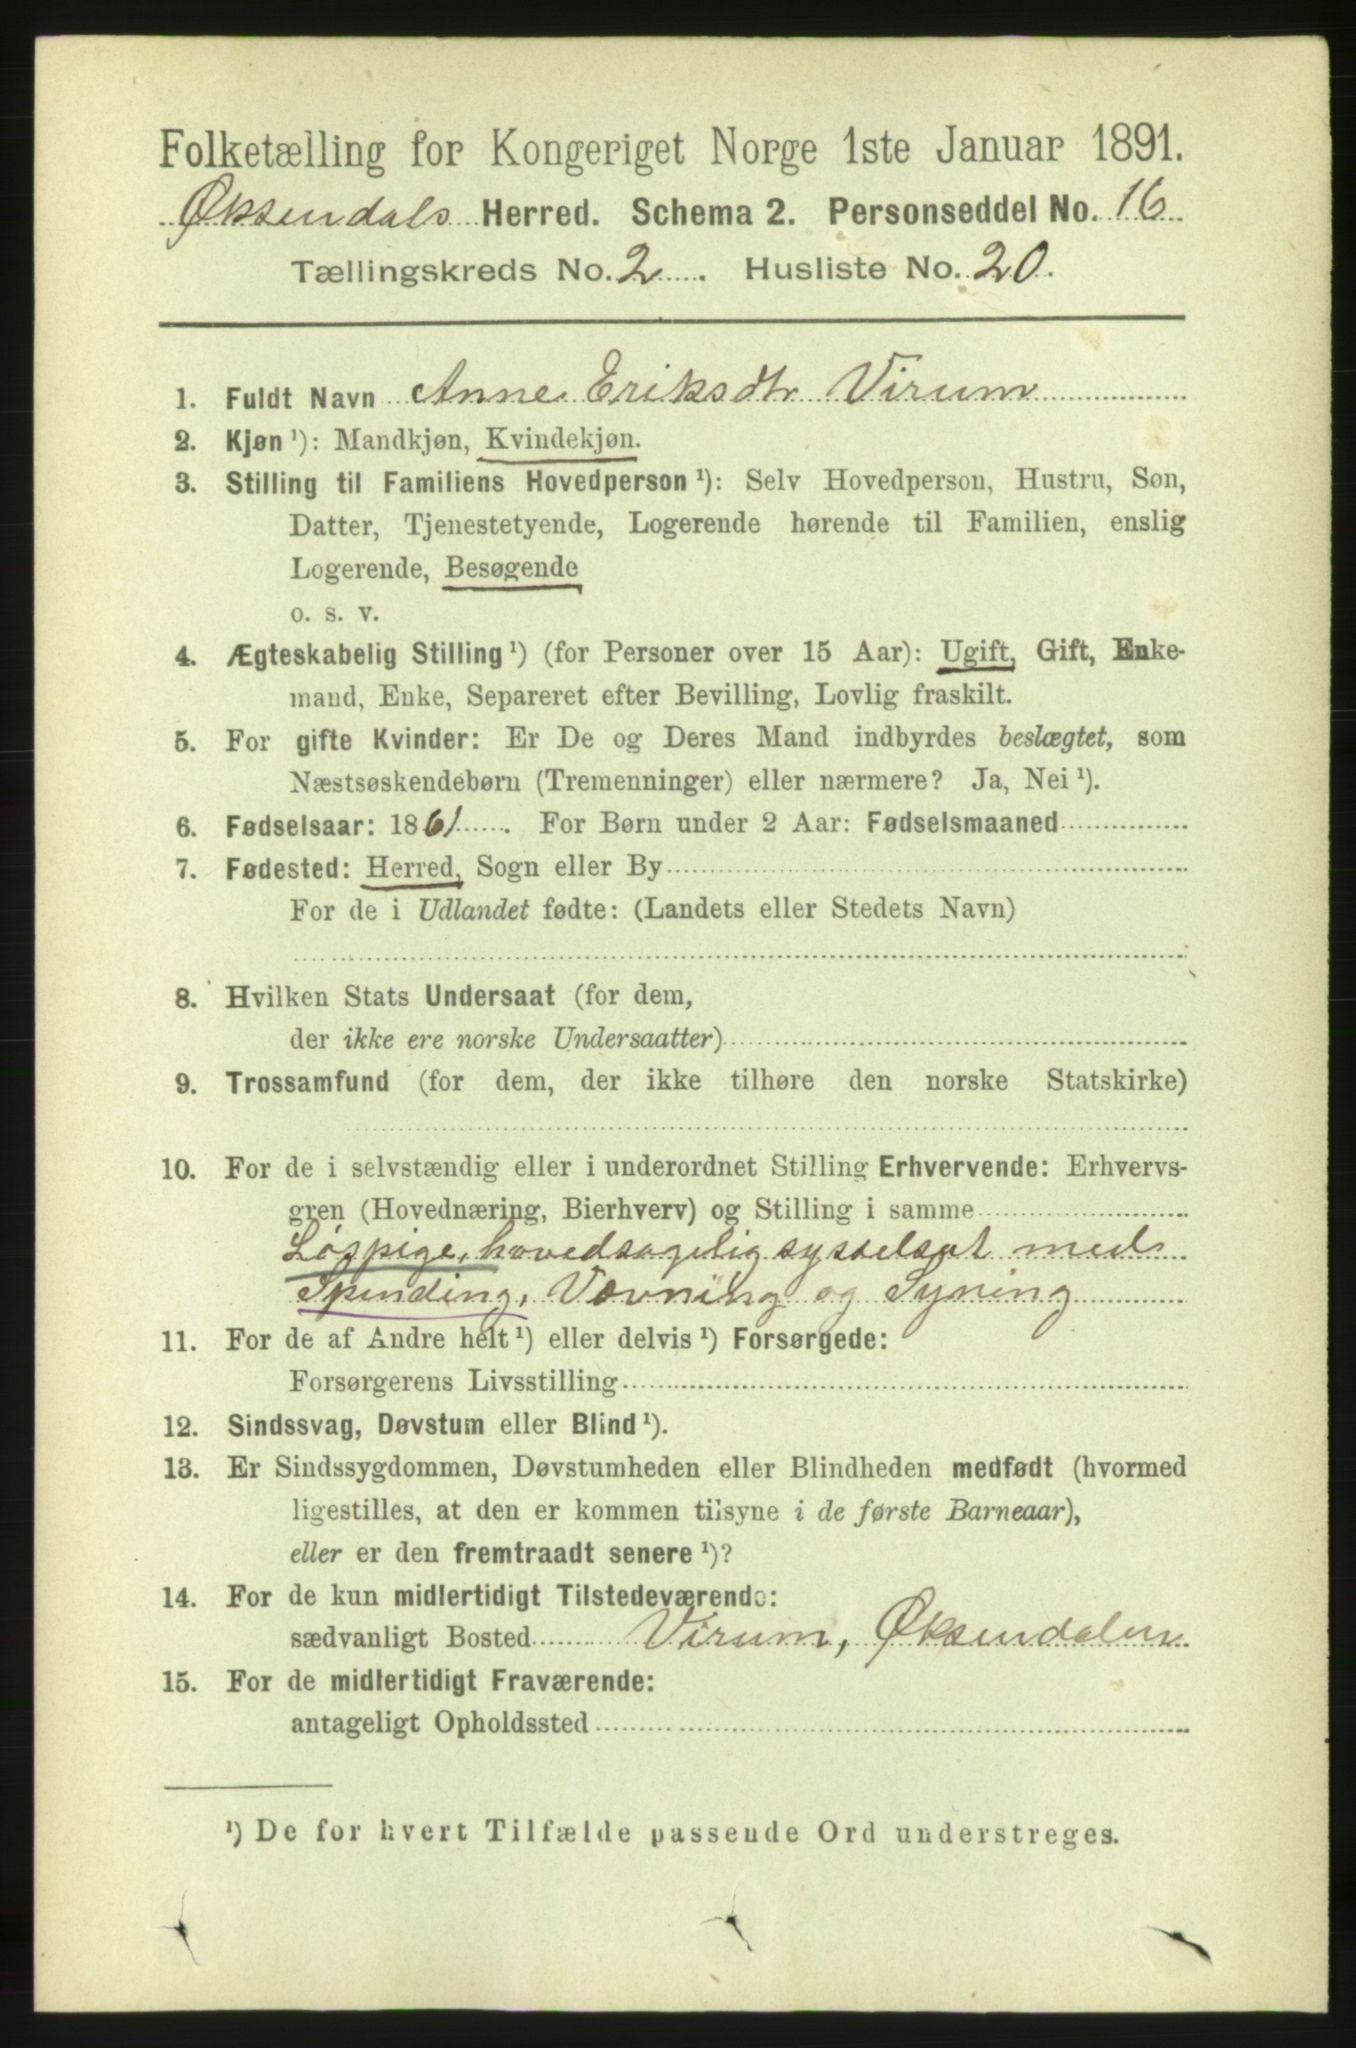 Folketælling for Kongeriget Norge 1ste Januar 1891.
Øksendals Herred. Schema 2. Personseddel No. 16
Tællingskreds No. 2. Husliste No. 20.
1. Fuldt Navn Anne Eriksdtr Virum
2. Kjøn ¹): Mandkjøn, Kvindekjøn.
3. Stilling til Familiens Hovedperson ¹): Selv Hovedperson, Hustru, Søn,
Datter, Tjenestetyende, Logerende hørende til Familien, enslig
Logerende, Besøgende
o. s. v.
4. Ægteskabelig Stilling ¹) (for Personer over 15 Aar): Ugift, Gift, Enke-
mand, Enke, Separeret efter Bevilling, Lovlig fraskilt.
5. For gifte Kvinder: Er De og Deres Mand indbyrdes beslægtet, som
Næstsøskendebørn (Tremenninger) eller nærmere? Ja, Nei ¹).
6. Fødselsaar: 1861. For Børn under 2 Aar: Fødselsmaaned
7. Fødested: Herred, Sogn eller By
For de i Udlandet fødte: (Landets eller Stedets Navn)
8. Hvilken Stats Undersaat (for dem,
der ikke ere norske Undersaatter)
9. Trossamfund (for dem, der ikke tilhøre den norske Statskirke)
10. For de i selvstændig eller i underordnet Stilling Erhvervende: Erhvervs-
gren (Hovednæring, Bierhverv) og Stilling i samme
Løspige, hovedsagelig sysselsat med
Spinding, Vævning og Syning
11. For de af Andre helt ¹) eller delvis ¹) Forsørgede:
Forsørgerens Livsstilling
12. Sindssvag, Døvstum eller Blind ¹).
13. Er Sindssygdommen, Døvstumheden eller Blindheden medfødt (hvormed
ligestilles, at den er kommen tilsyne i de første Barneaar),
eller er den fremtraadt senere ¹)?
14. For de kun midlertidigt Tilstedeværende:
sædvanligt Bosted Virum, Øksendalen
15. For de midlertidigt Fraværende:
antageligt Opholdssted
¹) De for hvert Tilfælde passende Ord understreges.